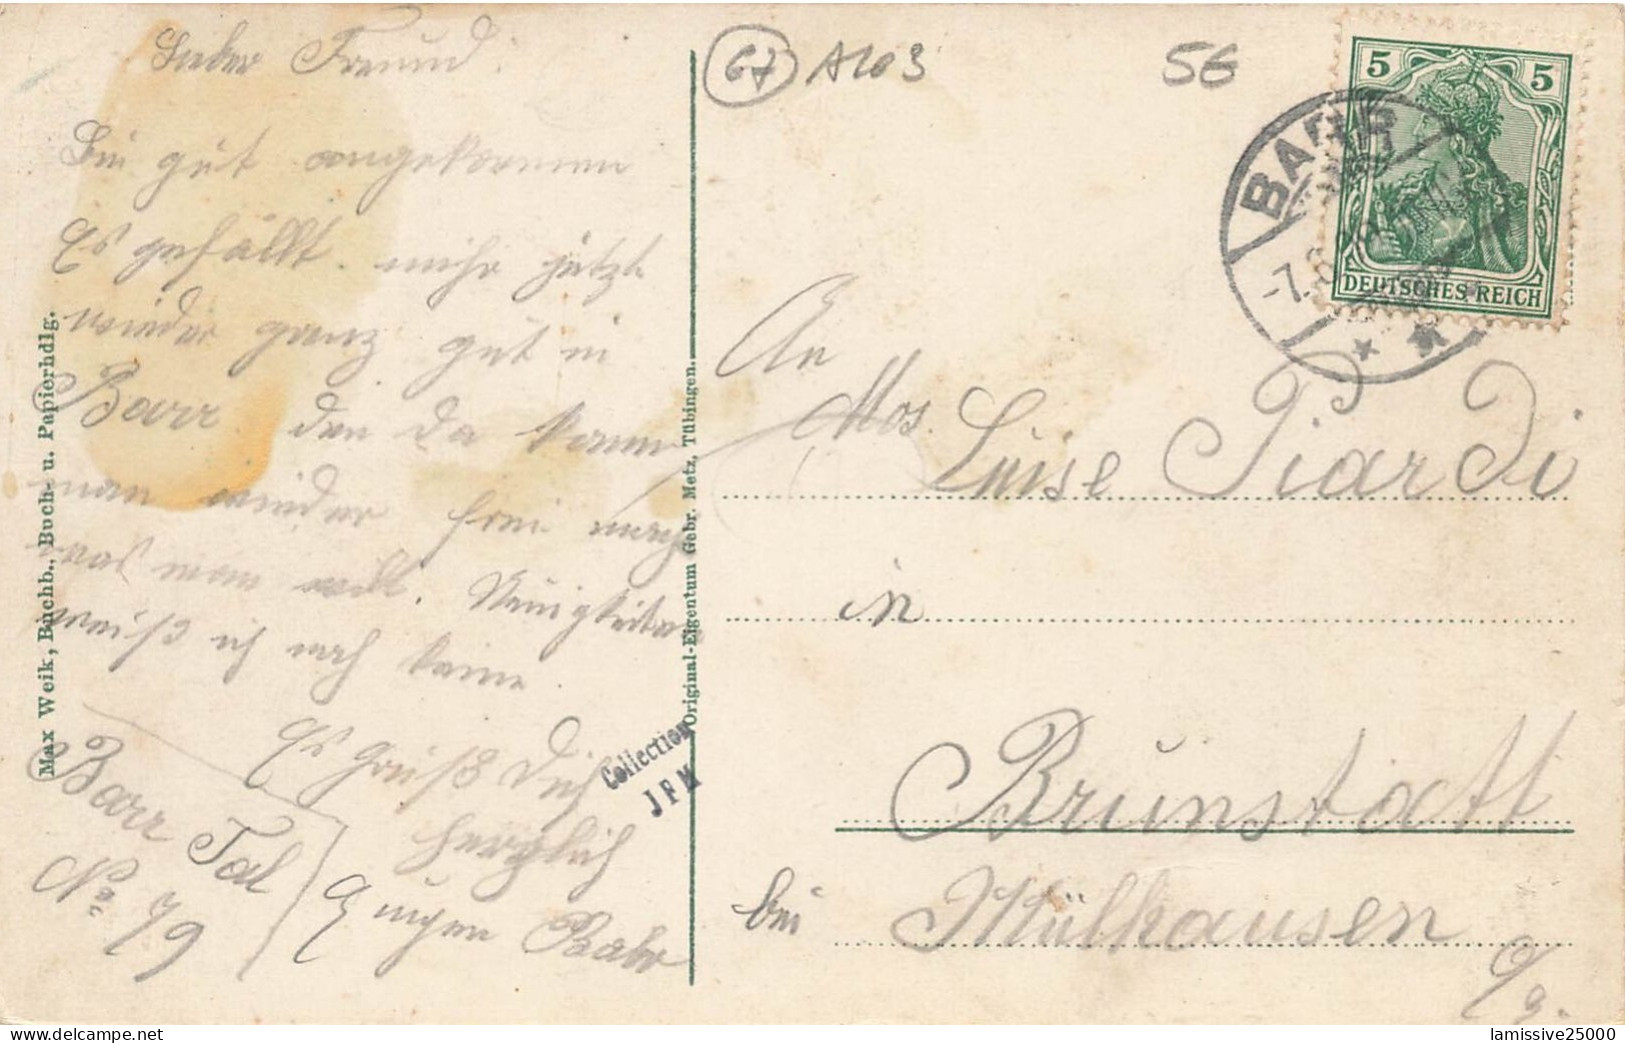 Lieber Freund.
Bin gut angekommen
Es gefällt mihr jetzt
wieder ganz gut in
Barr den da kann
man wieder frei mache
was man will. Neuigkeiten
weiß ich noch keine.
Es grüßt Dich
herzlich
Eugen
Barr Tal
No 79
Max Weik, Buchb., Buch- u. Papierhdlg.
Original-Eigentum Gebr. Metz, Tübingen.
Collection
JFM
67 A103
5€
5 5
DEUTSCHES REICH
BARR
-7.
An
Luise Piardi
in
Brunstatt
bei Mülhausen
lamissive25000